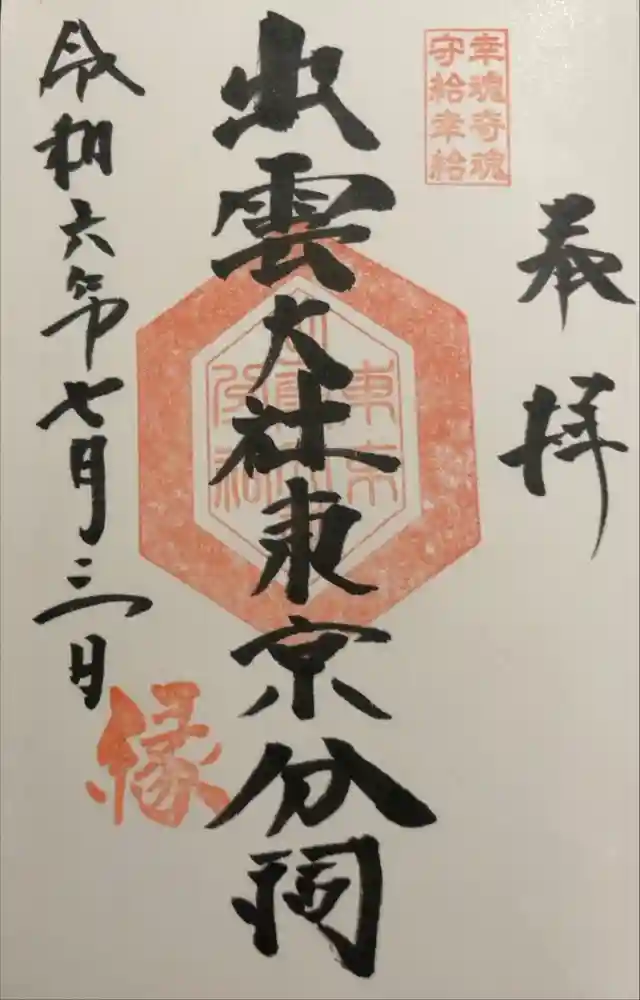 奉拝
幸魂奇魂
守給幸給
出雲大社東京分祠
令和六年七月三日
縁